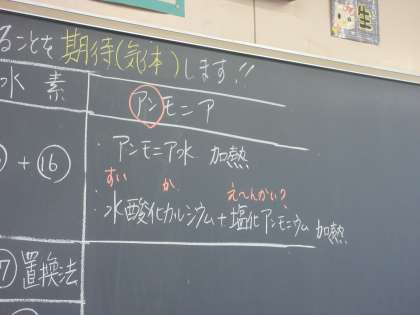 ることを期待(気体)します!!
水素
アンモニア
・アンモニア水 加熱
+ ⑯
すい か え〜んかい?
・水酸化カルシウム+塩化アンモニウム 加熱
置換法
生